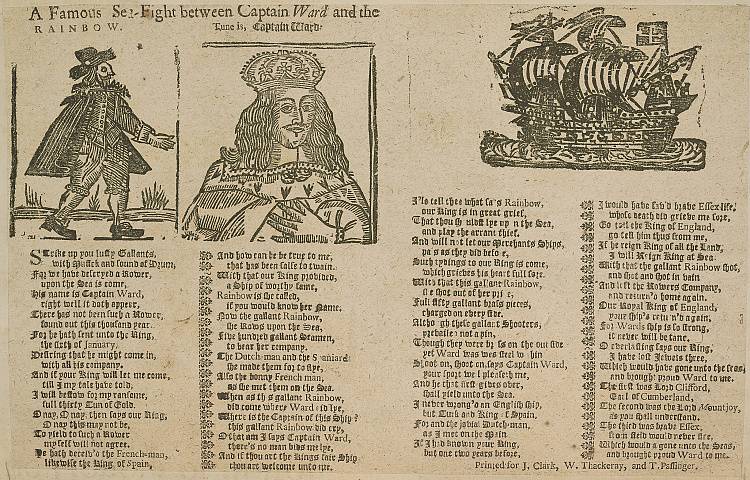 A Famous Sea-Fight between Captain Ward and the
RAINBOW. Tune is, Captain Ward.
Strike up you lusty Gallants,
with Musick and sound of Drum,
For we have descryed a Rower,
upon the Sea is come,
His name is Captain Ward,
right well it doth appear,
There has not been such a Rower,
found out this thousand year.
For he hath sent unto the King,
the sixth of January,
Desiring that he might come in,
with all his company.
And if your King will let me come,
till I my tale have told,
I will bestow for my ransome,
full thirty Tun of Gold.
O nay, O nay, then says our King,
O nay this may not be,
To yield to such a Rower
my self will not agree.
He hath deceiv'd the French-man,
likewise the King of Spain,
And how can he be true to me,
that has been false to twain.
With that our King provided,
a Ship of worthy fame,
Rainbow is she called,
if you would know her Name;
Now the gallant Rainbow,
she Rows upon the Sea,
Five hundred gallant Seamen,
to bear her company.
The Dutch-man and the Spaniard
she made them for to flye,
Also the bonny French man,
as she met them on the Sea.
When as this gallant Rainbow,
did come where Ward did lye,
Where is the Captain of this Ship?
this gallant Rainbow did cry,
O that am I says Captain Ward,
there's no man bids me lye,
And if thou art the Kings fair Ship
thou art welcome unto me.
I'le tell thee what says Rainbow,
our King is in great grief,
That thou shouldst lye upon the Sea,
and play the arrant thief.
And will not let our Merchants Ships,
pass as they did before,
Such tydings to our King is come,
which grieves his heart full sore.
With that this gallant Rainbow,
she shot out of her pride,
Full fifty gallant brass pieces,
charged on every side.
Although these gallant Shooters,
prevailed not a pin,
Though they were brass on the out side
yet Ward was steel within
Shoot on, shoot on, says Captain Ward,
your sport well pleaseth me,
And he that first gives over,
shall yield unto the Sea.
I never wrong'd an English ship,
but Turk and King of Spain,
For and the jovial Dutch-man,
as I met on the Spain.
If I had known your King,
but one two years before,
I would have sav'd brave Essex life,
whose death did grieve me sore,
Go tell the King of England,
go tell him thus from me,
If he reign King of all the Land,
I will Reign King at Sea.
With that the gallant Rainbow shot,
and shot and shot in vain
And left the Rowers Company,
and return'd home again.
Our Royal King of England,
your ship's return'd again,
For Wards ship is so strong,
it never will be tane.
O everlasting says our King,
I have lost Jewels three,
Which would have gone unto the seas,
and brought proud Ward to me.
The first was Lord Clifford,
Earl of Cumberland,
The second was the Lord Mountjoy,
as you shall understand.
The third was brave Essex,
from field would never flee,
Which would a gone unto the Seas,
and brought proud Ward to me.
Printed for J. Clark, W. Thackeray, and T. Passinger.